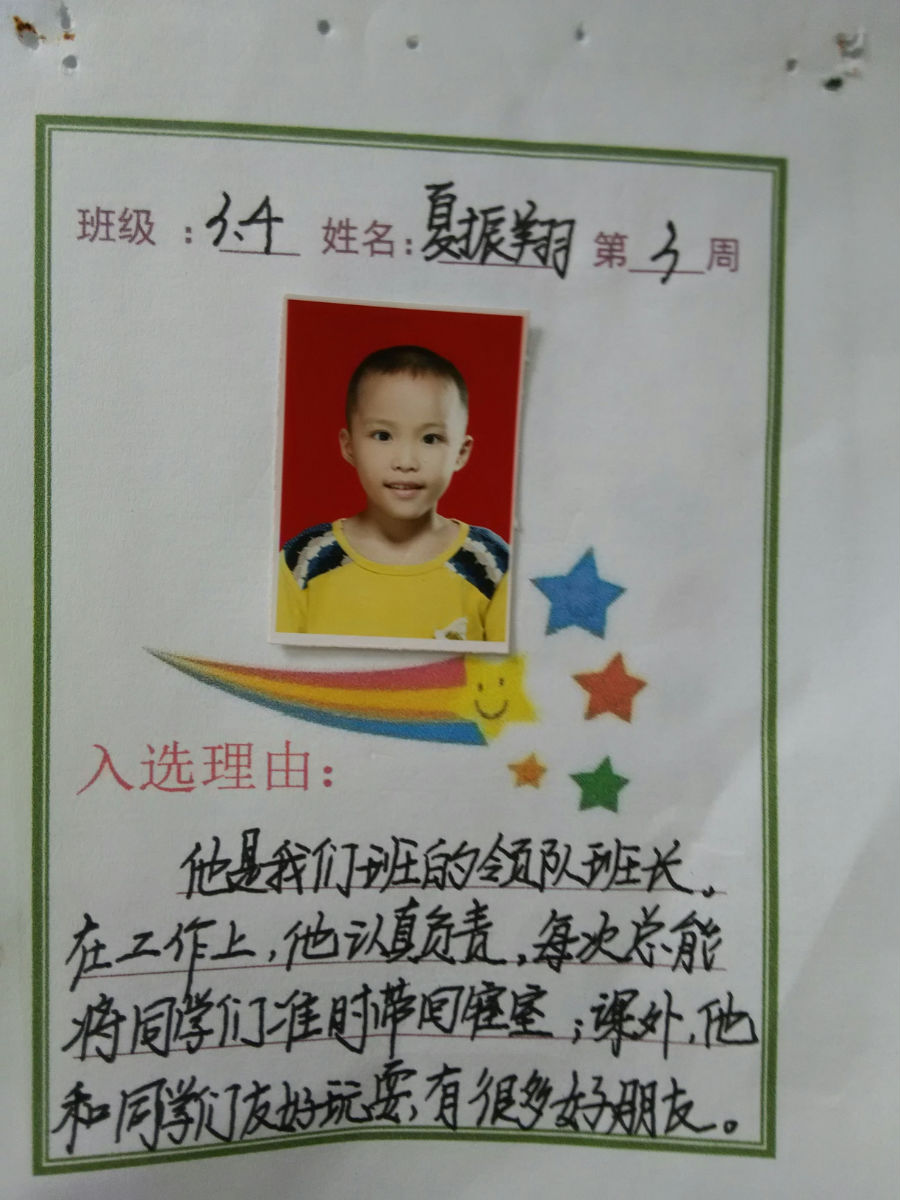 班级：3.4 姓名：夏振翔 第3周
入选理由：
他是我们班的领队班长。
在工作上，他认真负责，每次总能
将同学们准时带回寝室；课外，他
和同学们友好玩耍，有很多好朋友。